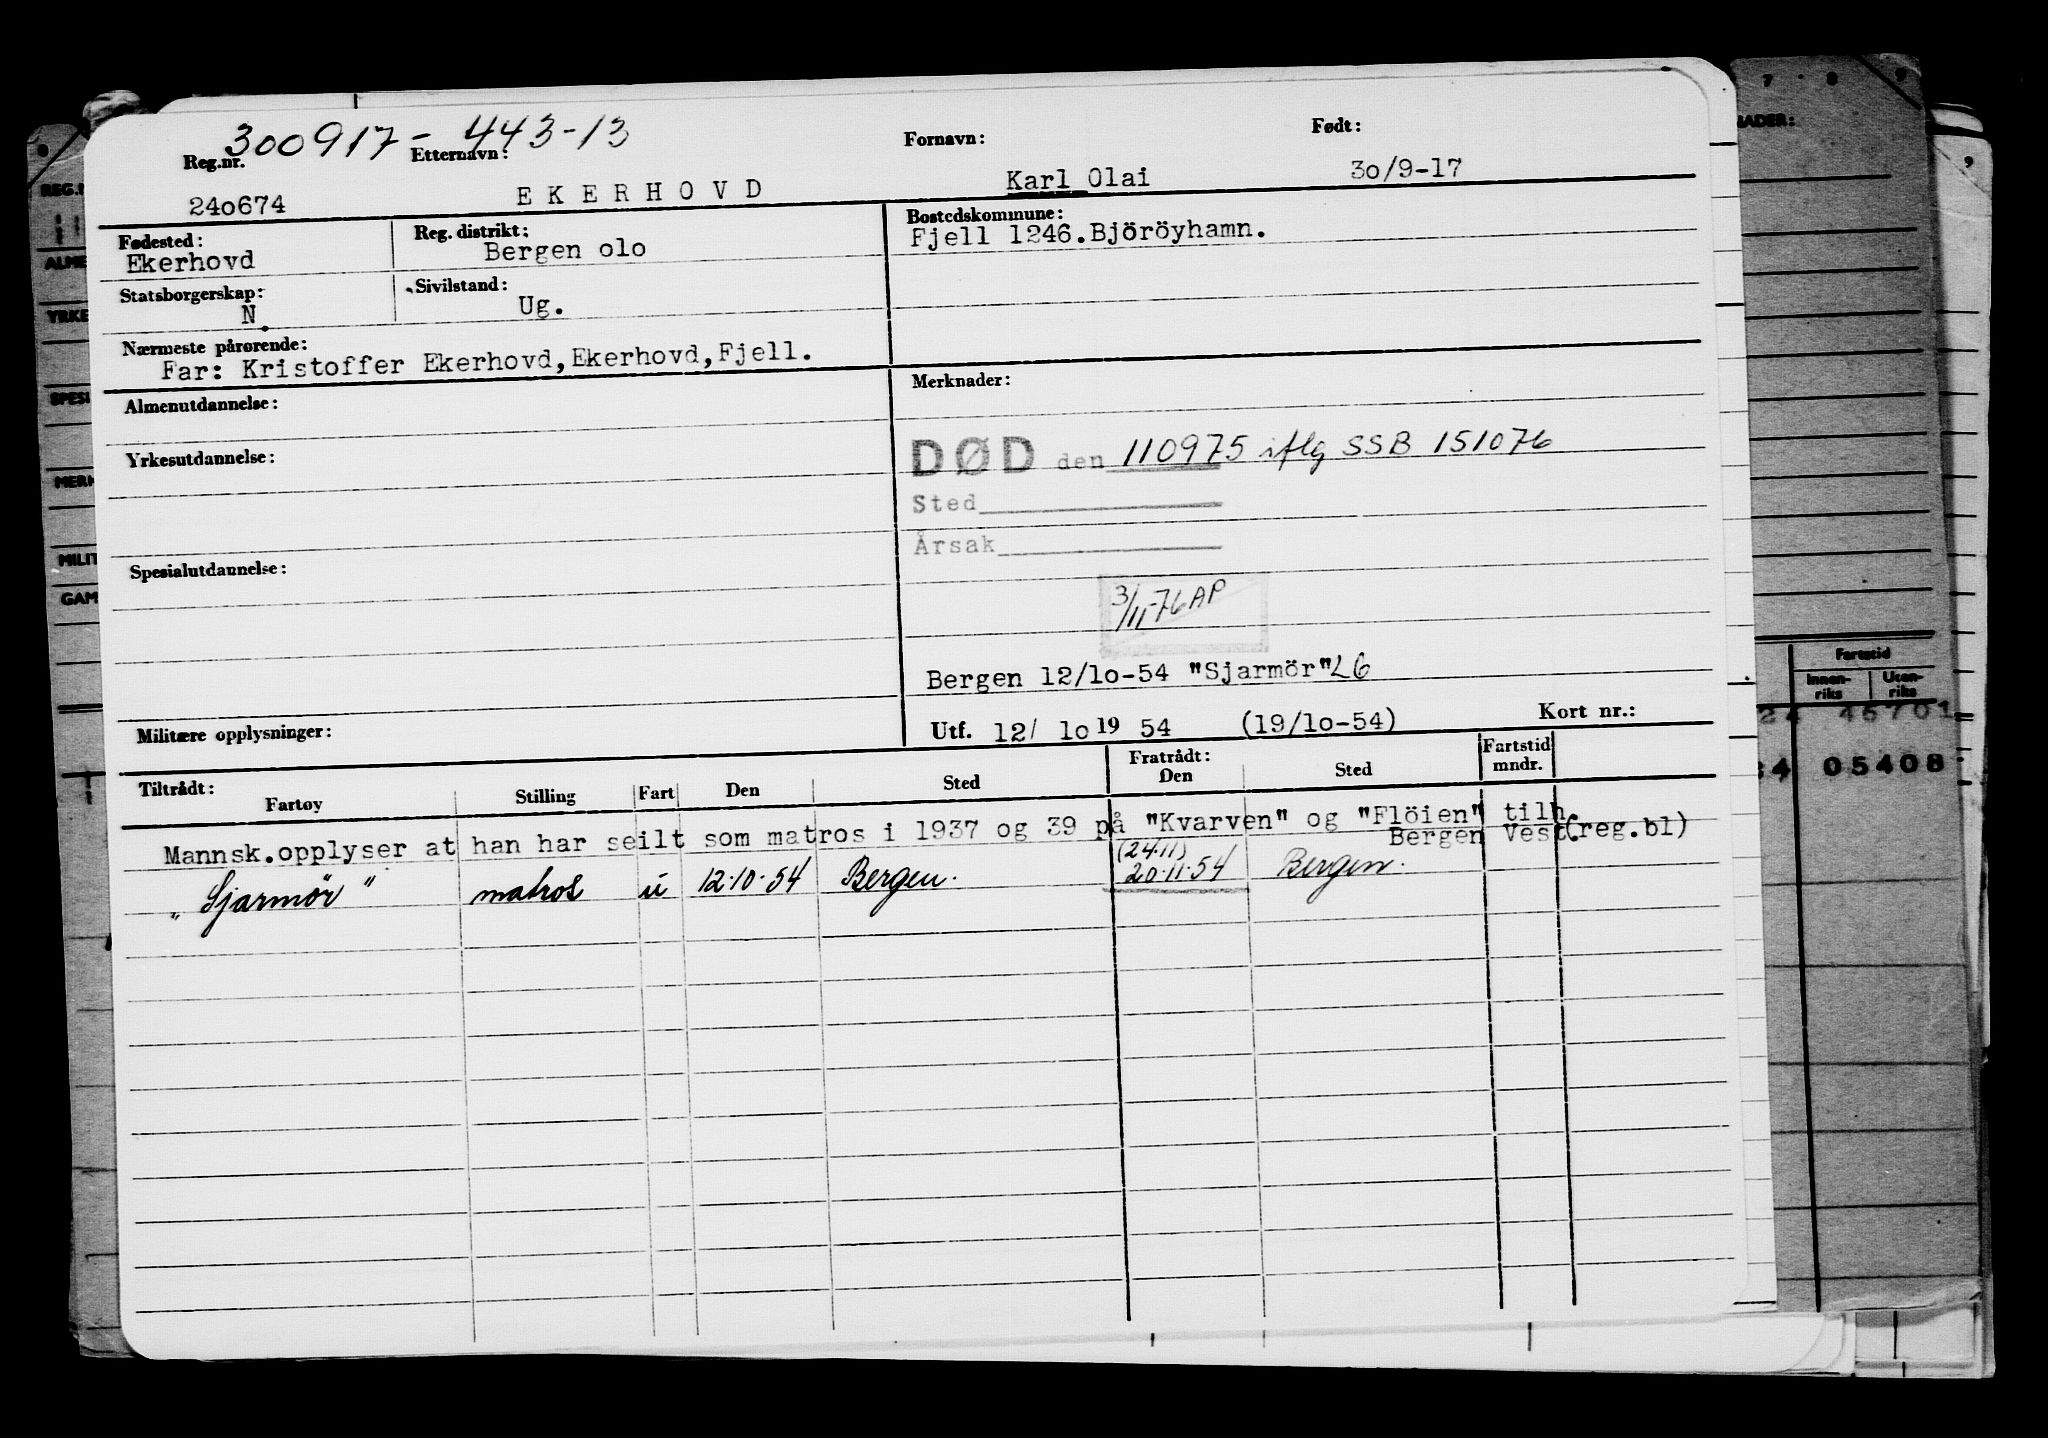 300917- 443-13
Reg.nr. Etternavn: Fornavn: Født:
240674 E K E R H O V D Karl Olai 3o/9-17
Fødested: Reg. distrikt: Bostedskommune:
Ekerhovd Bergen olo Fjell 1246.Björöyhamn.
Statsborgerskap: Sivilstand:
N. Ug.
Nærmeste pårørende:
Far: Kristoffer Ekerhovd,Ekerhovd,Fjell.
Almenutdannelse: Merknader:
DØD den 110975 iflg SSB 151076
Yrkesutdannelse:
Sted
Årsak
Spesialutdannelse:
3/11-76 AP
Bergen 12/1o-54 "Sjarmör" L6
Militære opplysninger: Utf. 12/ 1o 19 54 (19/1o-54) Kort nr.:
Tiltrådt: Fratrådt: Fartstid
Fartøy Stilling Fart Den Sted Den Sted mndr.
Mannsk.opplyser at han har seilt som matros i 1937 og 39 på "Kvarven" og "Flöien" tilh.
Bergen Vest(reg.bl)
(24.11)
"Sjarmör" matros u 12.10.54 Bergen. 20.11.54 Bergen.
7 8 9
NADER:
9
REG.N
ALME
YRKE
SPESI
MERK
MILIT
GAM
Fartstid
Innen-
riks
Uten-
riks
24 45701
34 05408